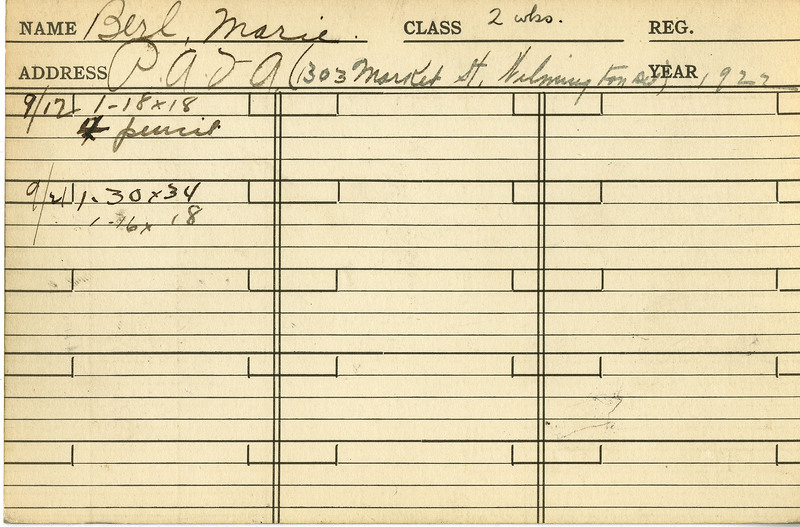 NAME Berl, Marie. CLASS 2 wks. REG.
ADDRESS P.A.F.A. (1303 Market St, Wilmington Del) YEAR 1922
9/12 1-18x18
4 pencil
9/21 1-30x34
1-16x18